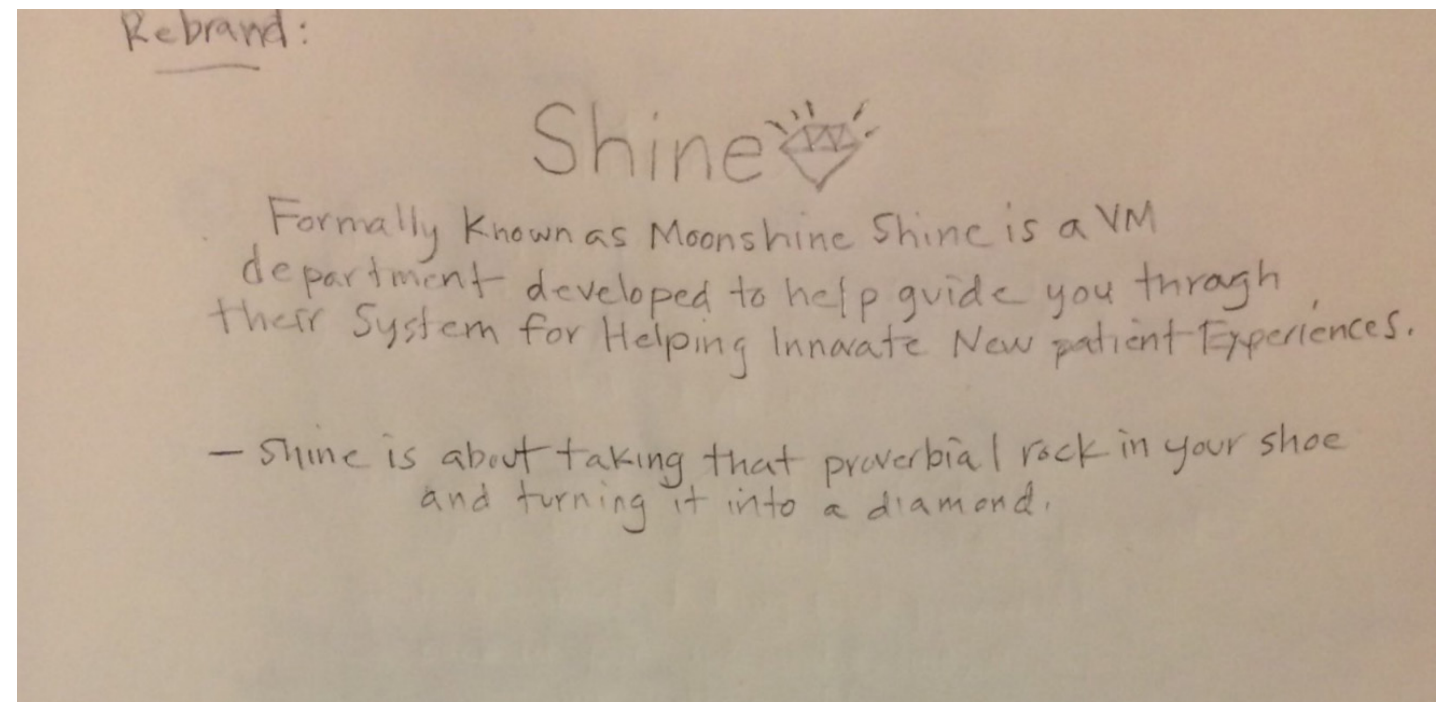 Rebrand:
Shine
Formally Known as Moonshine Shine is a VM
department developed to help guide you through
their System for Helping Innovate New patient Experiences.
- Shine is about taking that proverbial rock in your shoe
and turning it into a diamond.